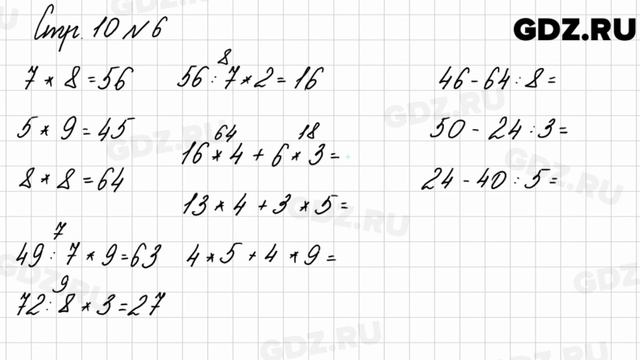 Стр. 10 №6
GDZ.RU
7 * 8 = 56
5 * 9 = 45
8 * 8 = 64
7
49 : 7 * 9 = 63
9
72 : 8 * 3 = 27
8
56 : 7 * 2 = 16
64 18
16 * 4 + 6 * 3 =
13 * 4 + 3 * 5 =
4 * 5 + 4 * 9 =
46 - 64 : 8 =
50 - 24 : 3 =
24 - 40 : 5 =
GDZ.RU
GDZ.RU
GDZ.RU
GDZ.RU
GDZ.RU
GDZ.RU
GDZ.RU